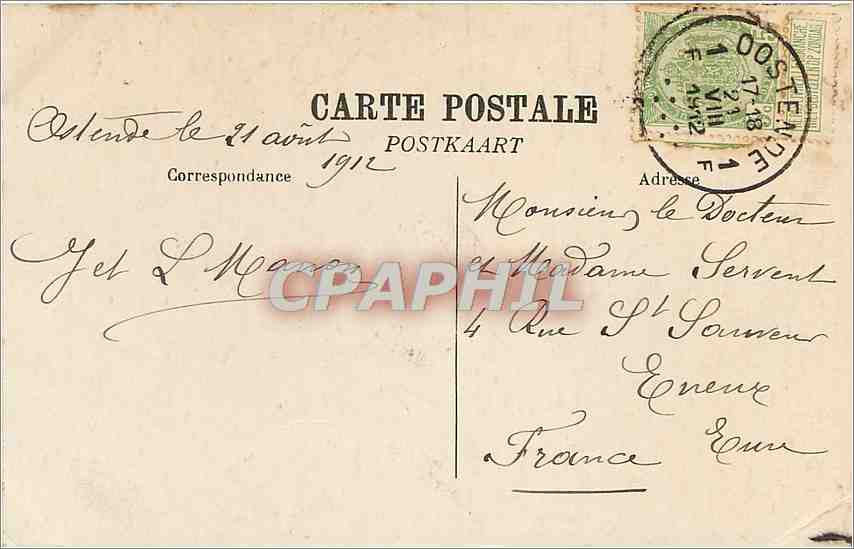 CARTE POSTALE
POSTKAART
Ostende le 21 août
1912
Correspondance
Adresse
OOSTENDE
1 F
17-18
21
VIII
1912
1 F
Monsieur le Docteur
et Madame Servent
4 Rue St Sauveur
Evreux
Eure
France
J et L
CPAPHIL